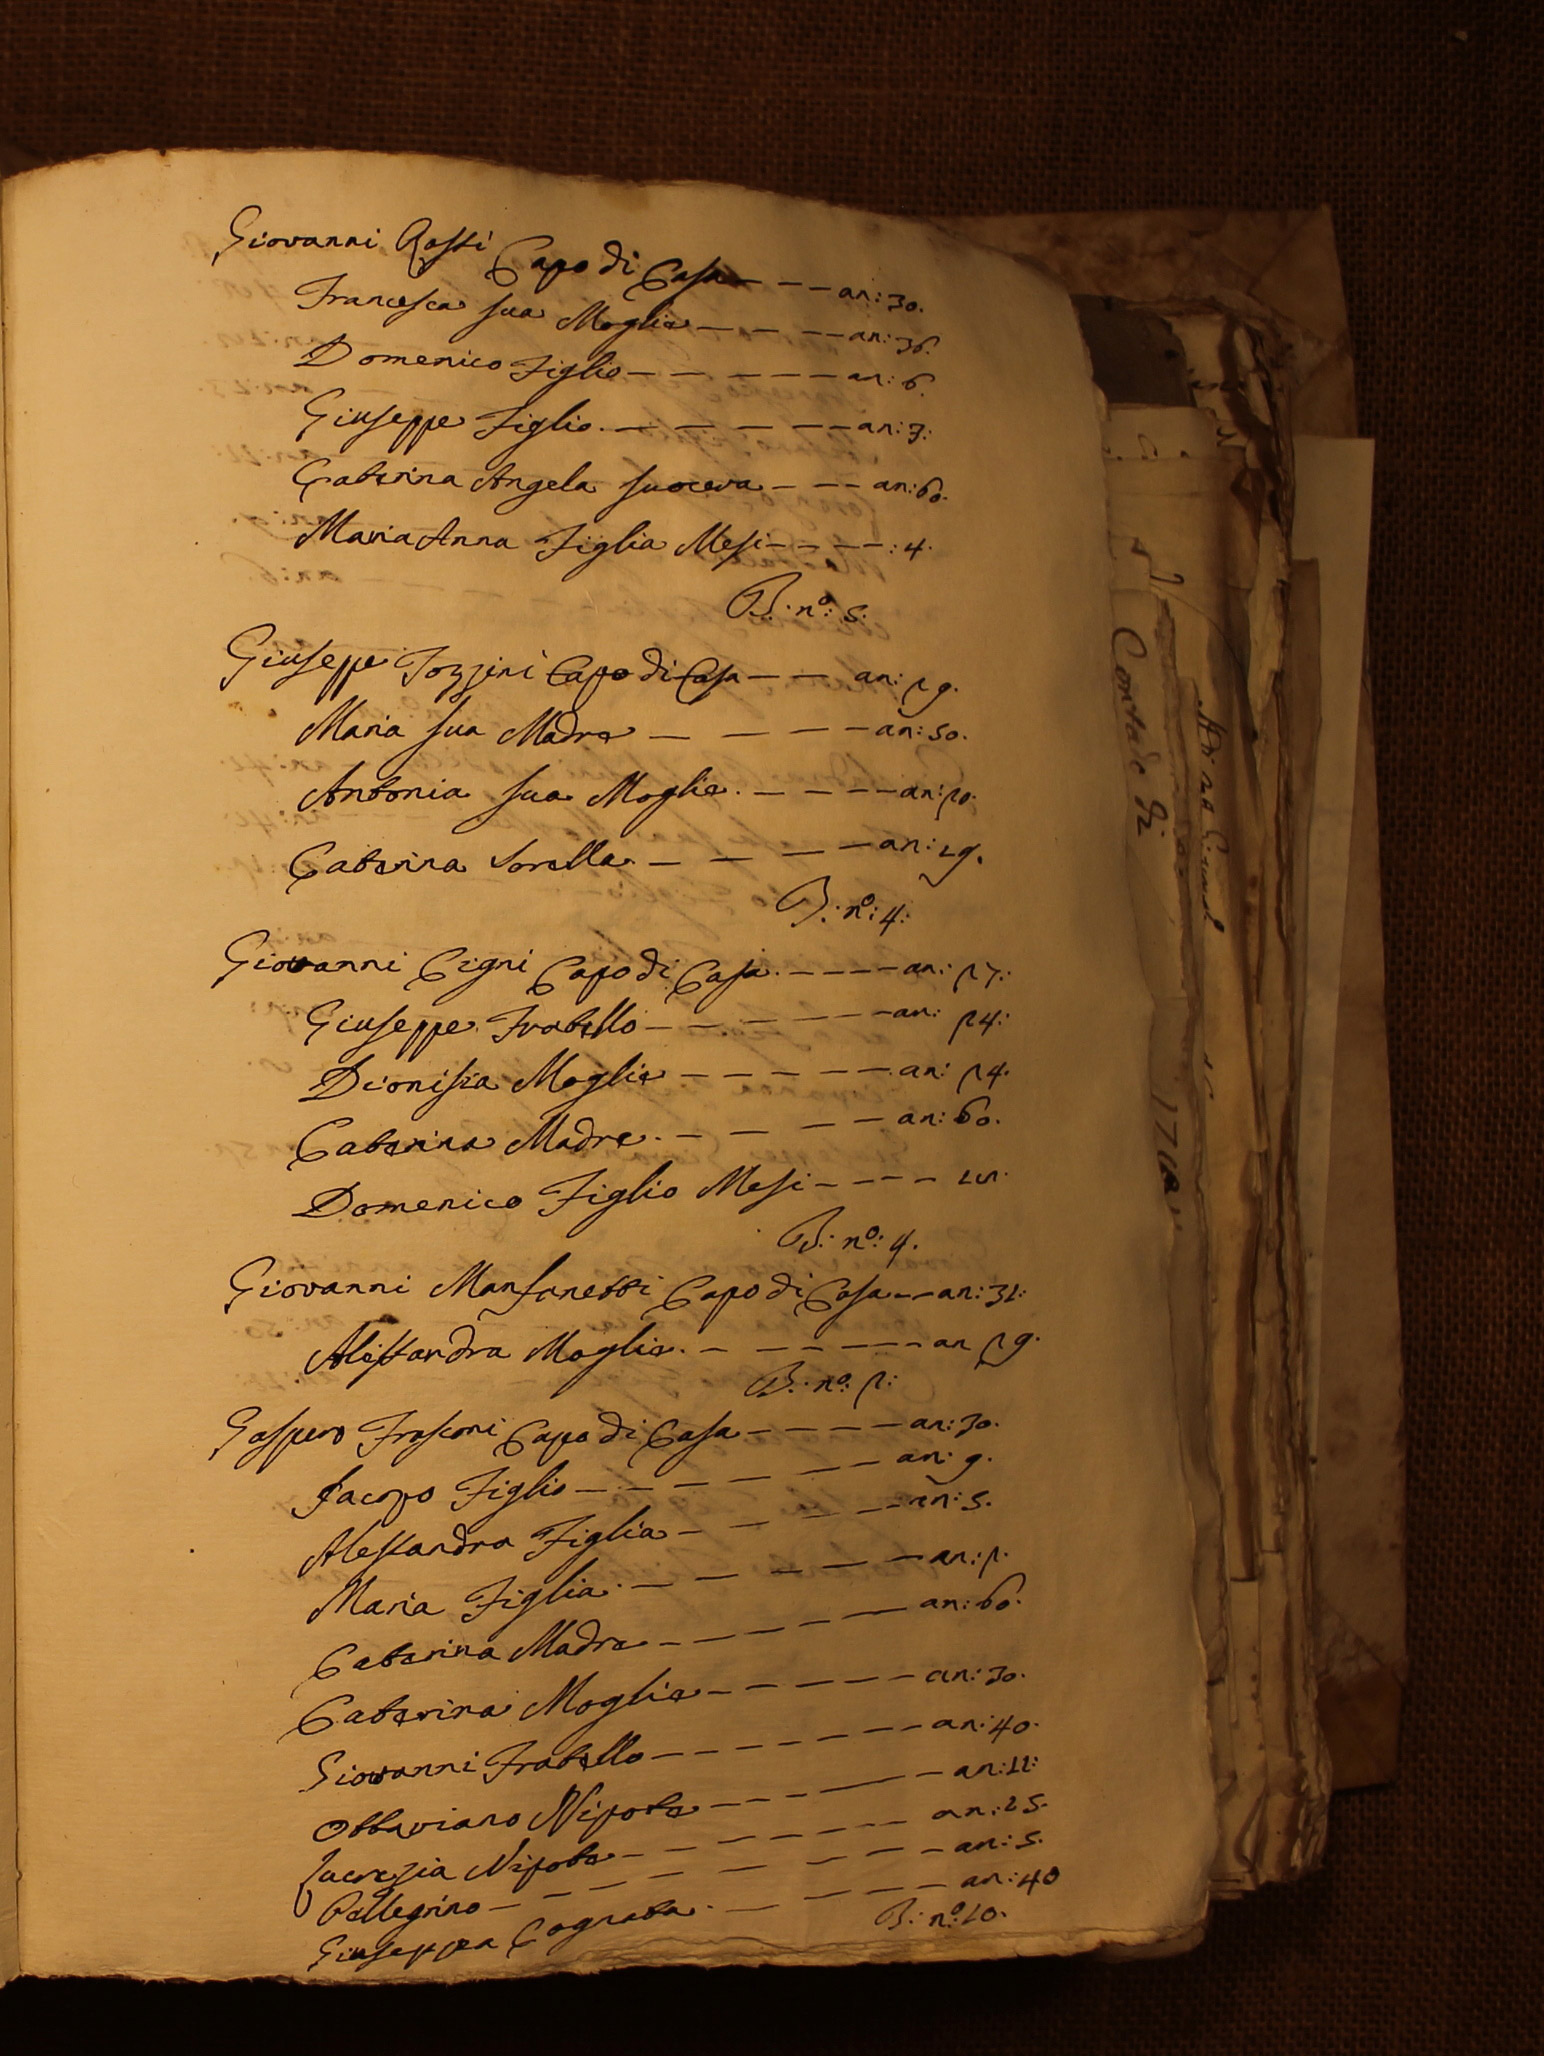 Giovanni Rossi Capo di Casa - - - an: 30.
Francesca sua Moglie - - - an: 36.
Domenico Figlio - - - - - - an: 6.
Giuseppe Figlio. - - - - - - an: 3:
Caterina Angela suocera - - - an: 60.
Maria Anna Figlia Mesi - - - - : 4.
B: nº: 5:
Giuseppe Fozzini Capo di Casa - - - an: 29.
Maria sua Madre - - - - an: 50.
Antonia sua Moglie. - - - - an: 20.
Caterina Sorella. - - - - an: 19.
B: nº: 4:
Giovanni Cigni Capo di Casa. - - - - an: 27:
Giuseppe Fratello - - - - - - an: 24:
Dionisia Moglie - - - - - - an: 24.
Caterina Madre. - - - - an: 60.
Domenico Figlio Mesi - - - -
B: nº: 4.
Giovanni Manfanetti Capo di Casa - - an: 31:
Alessandra Moglie. - - - - - - an 29.
B: nº: 2:
Gaspero Frasconi Capo di Casa - - - - - an: 30.
Jacopo Figlio - - - - - - an: 9.
Alessandra Figlia - - - - - an: 5.
Maria Figlia. - - - - - - an: 2.
Caterina Madre - - - - - - an: 60.
Caterina Moglie - - - - - - an: 30.
Giovanni Fratello - - - - - - - an: 40.
Ottaviano Nipote - - - - - an: 11:
Lucrezia Nipote - - - - - - an: 15.
Pellegrino - - - - - - - an: 5.
Giuseppa Cognata. - - - - an: 40
B: nº: 10.
Contado di
171